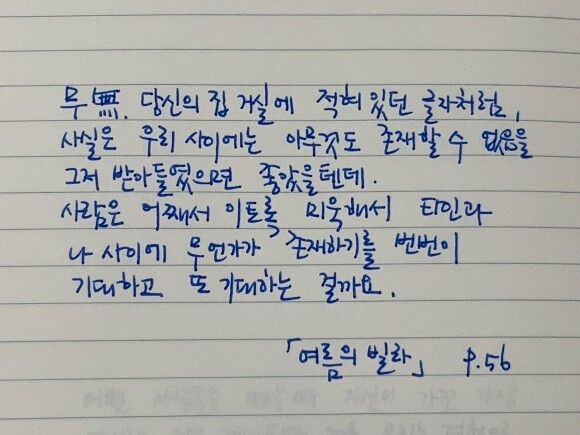 무無. 당신의 집 거실에 적혀 있던 글자처럼,
사실은 우리 사이에는 아무것도 존재할 수 없음을
그저 받아들였으면 좋았을텐데.
사람은 어째서 이토록 미욱해서 타인과
나 사이에 무언가가 존재하기를 번번이
기대하고 또 기대하는 걸까요.
「여름의 빌라」 p.56